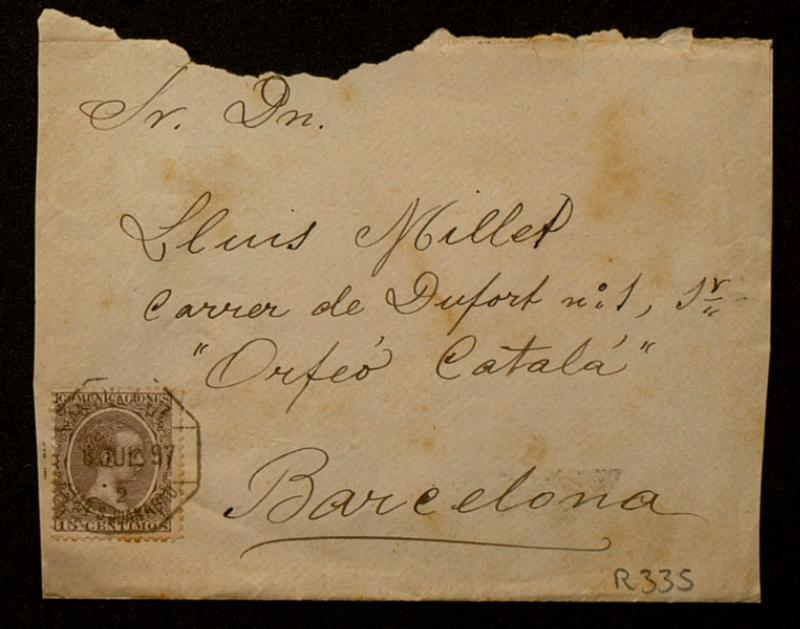 Sr. Dn.
Lluis Millet
Carrer de Dufort nº 1, 1r
"Orfeó Catalá"
Barcelona
COMUNICACIONES
8 JUL 97
2
15 CENTIMOS
R335